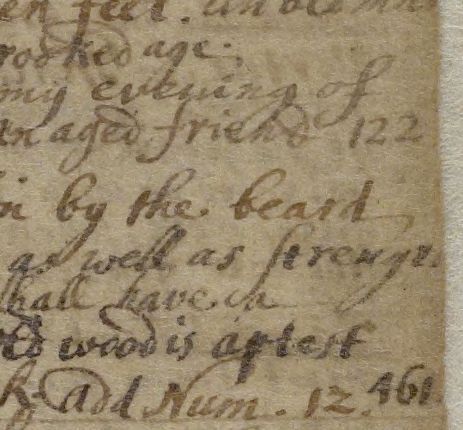 feet.
rooked age.
my evening of
an aged friend 122
in by the beard
as well as strengt
shall have in
old wood is aptest
add Num. 12. 461